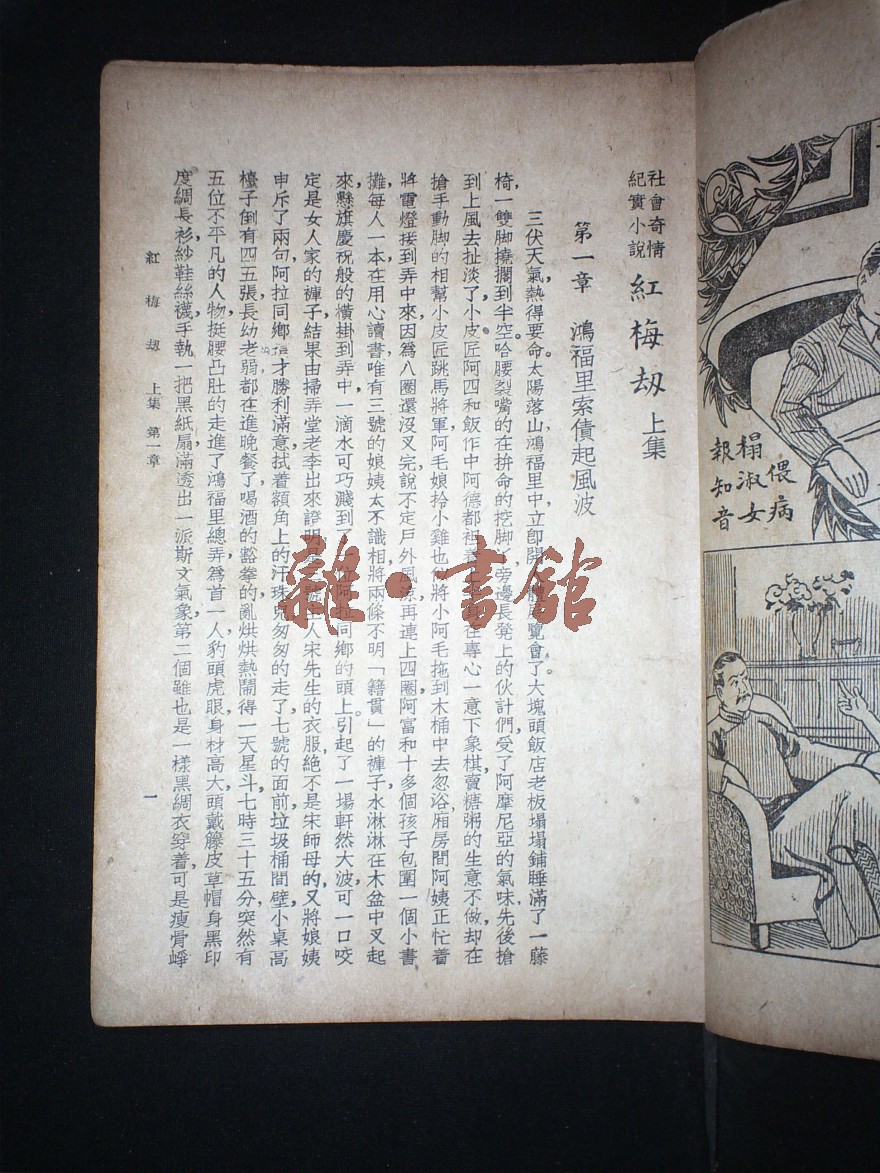 社會奇情
紀實小說
紅梅刼 上集
第一章 鴻福里索債起風波
三伏天氣熱得要命太陽落山鴻福里中立卽開人體展覽會了大塊頭飯店老板塌塌鋪睡滿了一藤
椅一雙脚撓擱到半空哈腰裂嘴的在拚命的挖脚丫旁邊長凳上的伙計們受了阿摩尼亞的氣味先後搶
到上風去扯淡了小皮匠阿四和飯作中阿德都在專心一意下象棋賣糖粥的生意不做却在
搶手動脚的相幫小皮匠跳馬將軍阿毛娘拎小雞也似將小阿毛拖到木桶中去忽浴廂房間阿姨正忙着
將電燈接到弄中來因爲八圈還沒叉完說不定戶外風涼再連上四圈阿富和十多個孩子包圍一個小書
攤每人一本在用心讀書唯有三號的娘姨太不識相將兩條不明「籍貫」的褲子水淋淋在木盆中叉起
來懸旗慶祝般的橫掛到弄中一滴水可巧濺到了一位阿拉同鄉的頭上引起了一場軒然大波可一口咬
定是女人家的褲子結果由掃弄堂老李出來證明是三號主人宋先生的衣服絕不是宋師母的又將娘姨
申斥了兩句阿拉同鄉這才勝利滿意拭着額角上的汗珠兒匆匆的走了七號的面前垃圾桶間壁小桌高
檯子倒有四五張長幼老弱都在進晚餐了喝酒的豁拳的亂烘烘熱鬧得一天星斗七時三十五分突然有
五位不平凡的人物挺腰凸肚的走進了鴻福里總弄爲首一人豹頭虎眼身材高大頭戴籐皮草帽身黑印
度綢長衫紗鞋絲襪手執一把黑紙扇滿透出一派斯文氣象第二個雖也是一樣黑綢衣穿着可是瘦骨崢
紅梅刼 上集 第一章
一
偎病
榻淑女
報知音
雜·書館